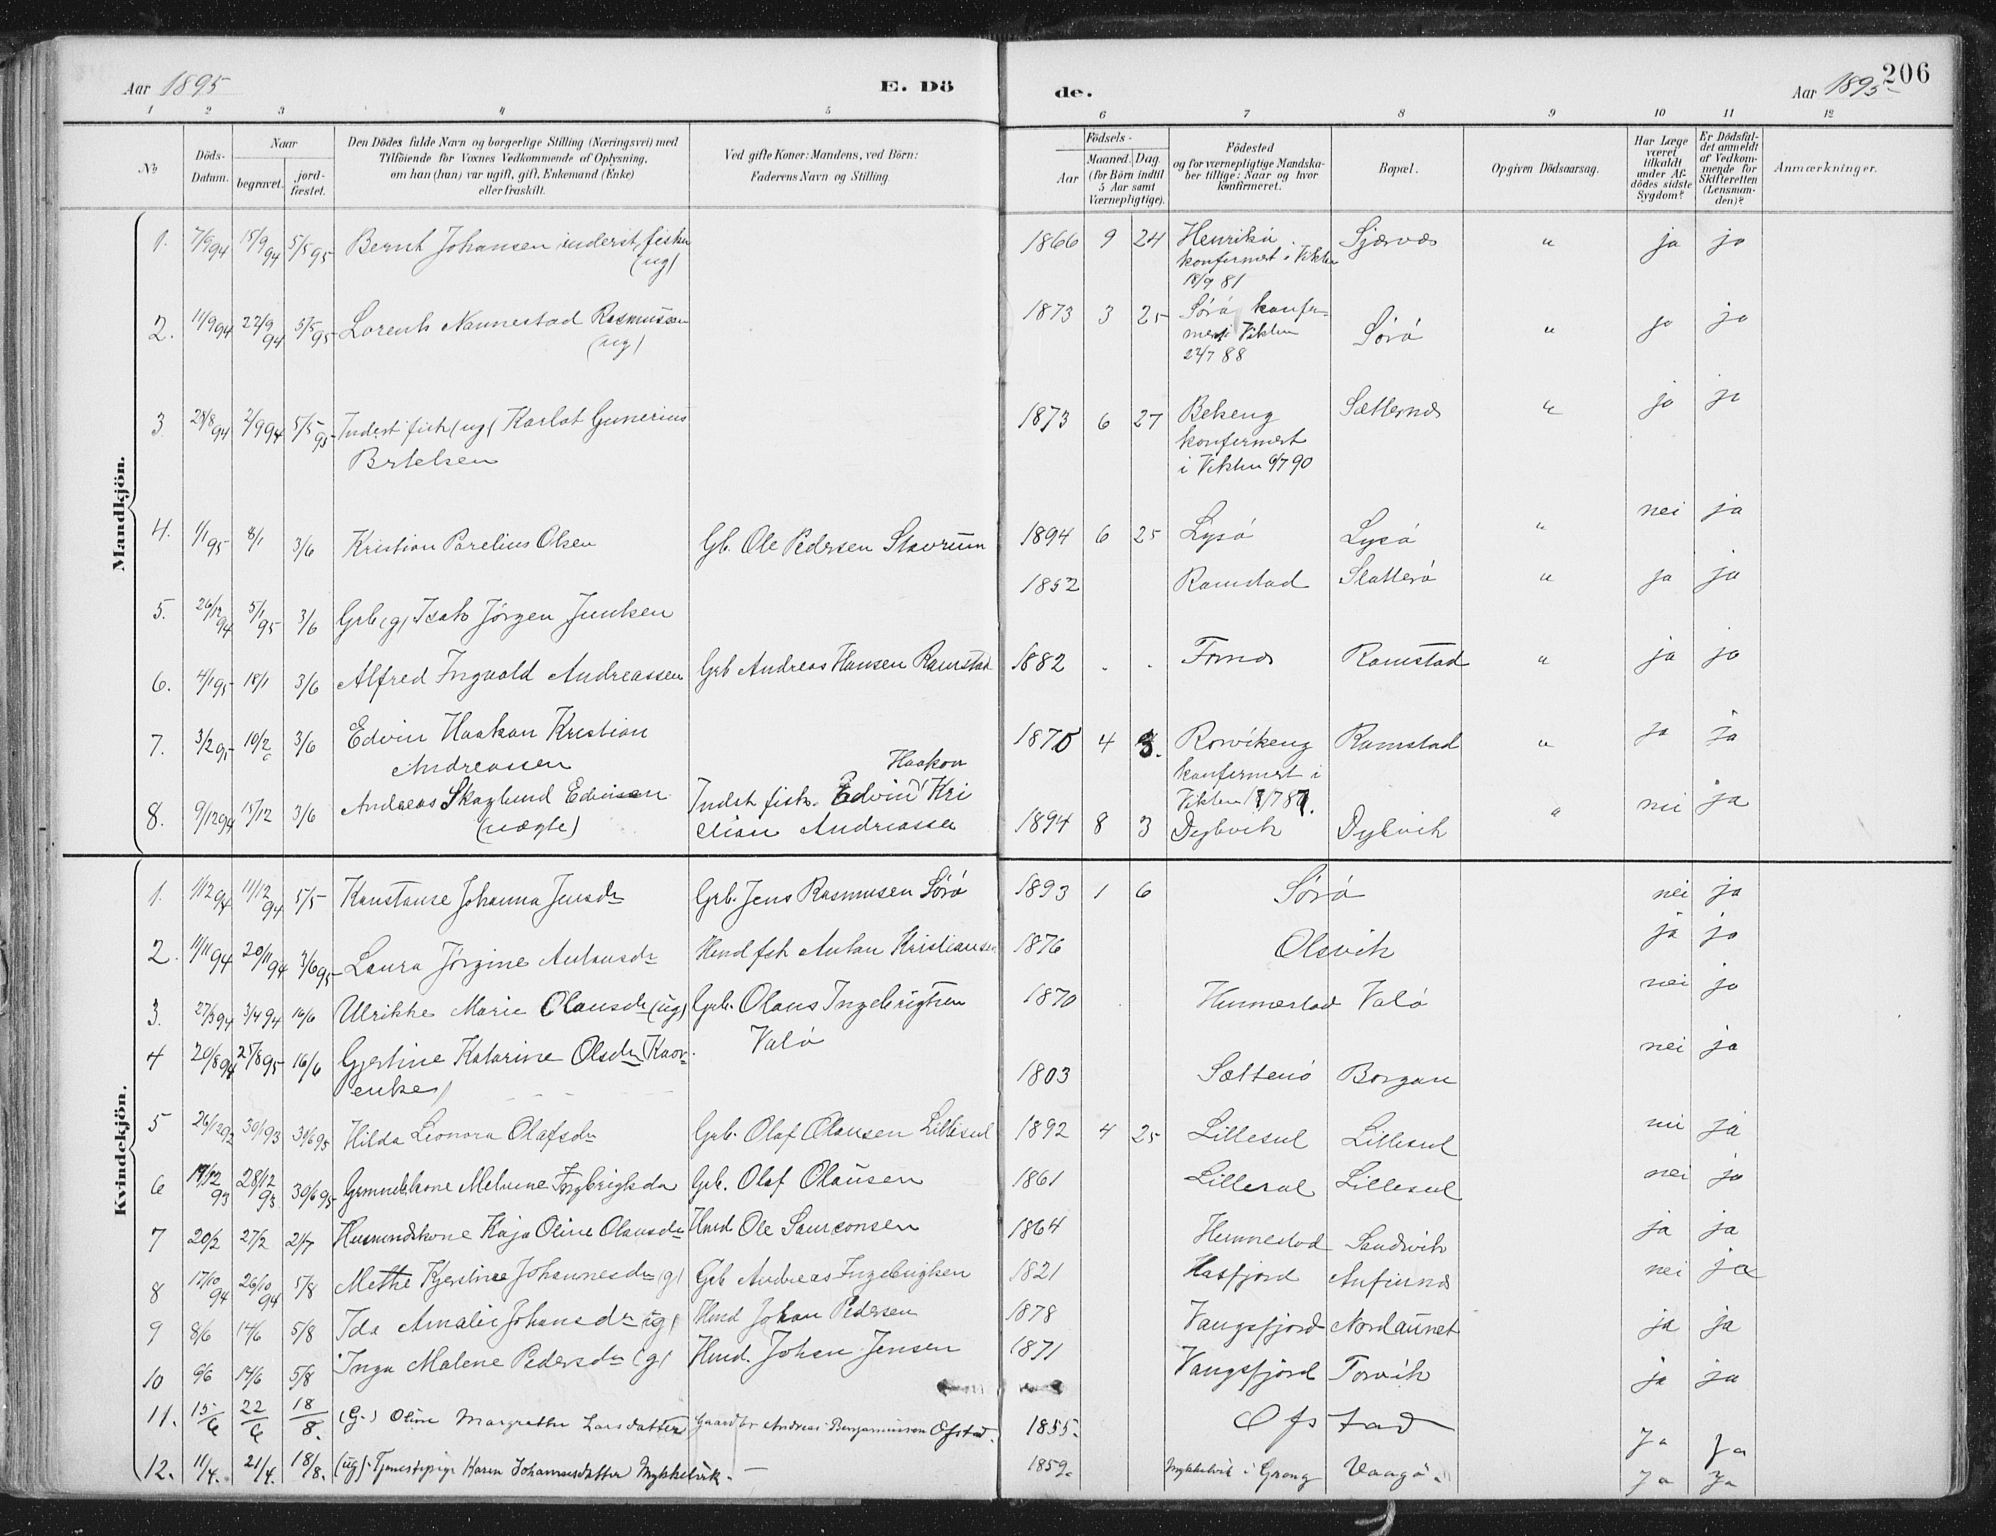 Aar 1895
E. Dö
de.
Aar 1895
206
1 2 3 4 5 6 7 8 9 10 11 12
No
Döds-
Datum.
Naar
begravet.
jord-
fæstet.
Den Dödes fulde Navn og borgerlige Stilling (Næringsvei) med
Tilföiende for Voxnes Vedkommende af Oplysning,
om han (hun) var ugift, gift, Enkemand (Enke)
eller fraskilt.
Ved gifte Koner: Mandens, ved Börn:
Faderens Navn og Stilling.
Födsels-
Aar
Maaned. Dag.
(for Börn indtil
5 Aar samt
Værnepligtige).
Födested
og for værnepligtige Mandska-
ber tillige: Naar og hvor
konfirmeret.
Bopæl.
Opgiven Dödsaarsag.
Har Læge
været
tilkaldt
under Af-
dödes sidste
Sygdom?
Er Dödsfal-
det anmeldt
af Vedkom-
mende for
Skifteretten
(Lensman-
den)?
Anmærkninger.
Mandkjön.
1. 7/9 94 15/9 94 5/5 95 Bernt Johansen inderst, fisker 1866 9 24 Sjærvæs " ja ja
(ug) konfermert i Vikten
18/9 81
2. 11/9 94 22/9 94 5/5 95 Lorents Nannestad Rasmussen 1873 3 25 Sørø konfer- Sørø " ja ja
(ug) Vikten
24/7 88
3 28/8 94 2/9 94 5/5 95 Inderst fisk (ug) Karlot Gunerius 1873 6 27 Bekeng Sætternes " ja ja
Brtelsen konfermert
i Vikten 6/7 90
4. 1/1 95 8/1 3/6 Kristian Parelius Olsen Gb. Ole Pedersen Stavrum 1894 6 25 Lysø Lysø " nei ja
5. 26/12 94 5/1 95 3/6 Grb (g) Isak Jørgen Juulsen 1852 Ramstad Slatterø " ja ja
6. 4/1 95 18/1 3/6 Alfred Ingvald Andreassen Grb Andreas Hansen Ramstad 1882 . . Ramstad " ja ja
7. 3/2 95 10/2 3/6 Edvin Haakon Kristian 1875 4 3. Rorvikeng Ramstad " ja ja
Andreassen konfermert i
Vikten
8. 9/12 94 15/12 3/6 Andreas Skaglund Edvinsen Indst fisk. Edvin Haakon Kri 1894 8 3 Dybvik Dybvik " nei ja
(uægte) stian Andreassen
Kvindekjön.
1. 1/12 94 11/12 94 5/5 Konstanse Johanna Jensdr Grb. Jens Rasmusen Sørø 1893 1 6 Sørø nei ja
2. 11/11 94 20/11 94 3/6 95 Laura Jørgine Antonsdr Husmd fisk Anton Kristiansen 1876 Olsvik ja ja
3. 27/3 94 3/4 94 16/6 Ulrikke Marie Olausdr (ug) Grb. Olaus Ingebrigtsen 1870 Hunnestad Valø nei ja
Valø
4 20/8 94 25/8 95 16/6 Gjertine Katarine Olsdr 1803 Sætterø Borgan nei ja
enke)
5 26/12 92 30/1 93 30/6 95 Hilda Leonora Olafsdr Grb. Olaf Olausen Lillesul 1892 4 25 Lillesul Lillesul nei ja
6 19/12 93 28/12 93 30/6 95 Melvine Ingbrigtsda Grb. Olaf Olausen 1861 Lillesul Lillesul nei ja
7 20/2 27/2 21/7 Husmndskone Kaja Oline Olausdr Husmd Ole 1864 Hunnestad Sandvik ja ja
8 17/10 94 26/10 94 5/8 Mette Kjerstine Johannesdr (g) Grb Andreas Ingebrigtsen 1821 Hasfjord Anfinnes nei ja
9 8/6 14/6 5/8 Ida Amalie Johansdr (ug) Husmd Johan Pedersen 1878 Vangsfjord Nordaunet ja ja
10 9/6 14/6 5/8 Inga Malene Pedersdr (g) Husmd. Johan Jensen 1871 Vangsfjord Torvik ja ja
11. 15/6 22/6 18/8. (G.) Oline Margrethe Larsdatter Gaardbr Andreas Benjaminsen Ofstad. 1855. Ofstad ja ja
12. 11/4. 21/4. 18/8. (ug). Tjenestepige Karen Johannesdatter Mykkelvik. — 1859. Mykkelvik i Grong Vaagø. ja ja